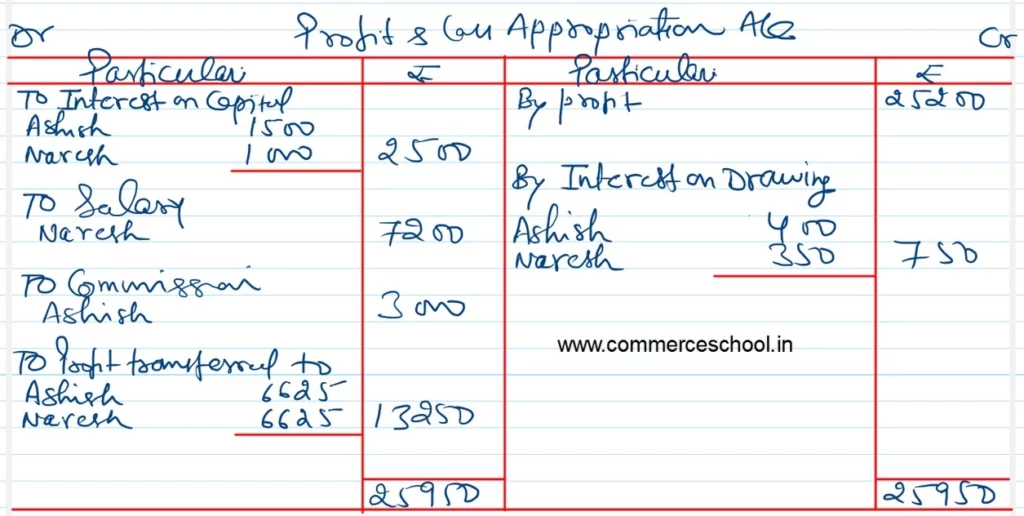 Dr Profit & Loss Appropriation A/c Cr
Particular ₹ Particular ₹
To Interest on Capital By profit 25200
Ashish 1500
Naresh 1000 2500
By Interest on Drawing
To Salary
Naresh 7200 Ashish 400
Naresh 350 750
To Commission
Ashish 3000
www.commerceschool.in
To Profit transferred to
Ashish 6625
Naresh 6625 13250
25950 25950